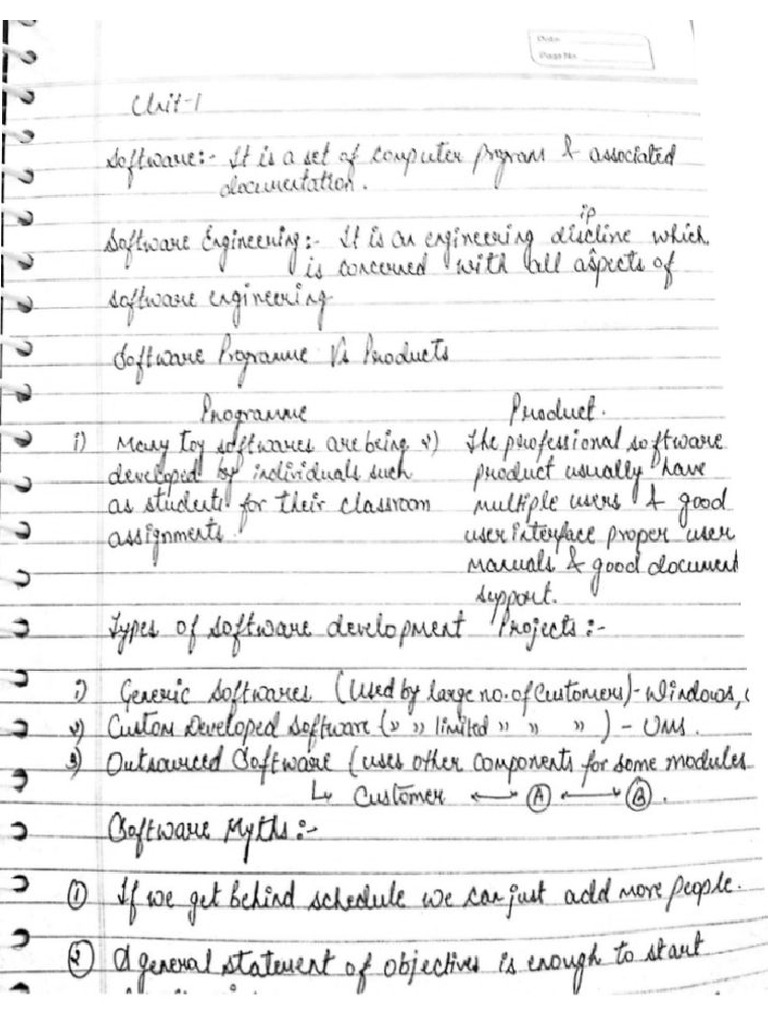 Date:
Page No.
Unit-1
Software:- It is a set of computer program & associated
documentation.
ip
Software Engineering:- It is an engineering discline which
is concerned with all aspects of
software engineering
Software Programme Vs Products
Programme Product.
i) Many toy softwares are being
developed by individuals such
as students for their classroom
assignments.
v) The professional software
product usually have
multiple users & good
user interface proper user
manuals & good document
support.
Types of software development Projects:-
i) Generic Softwares (Used by large no. of Customers) - Windows,
v) Custom Developed Software (" " limited " " ") - UMS.
3) Outsourced Software (uses other components for some modules
↳ Customer ⟷ Ⓐ ⟷ Ⓑ.
Software Myths:-
① If we get behind schedule we can just add more people.
② A general statement of objectives is enough to start